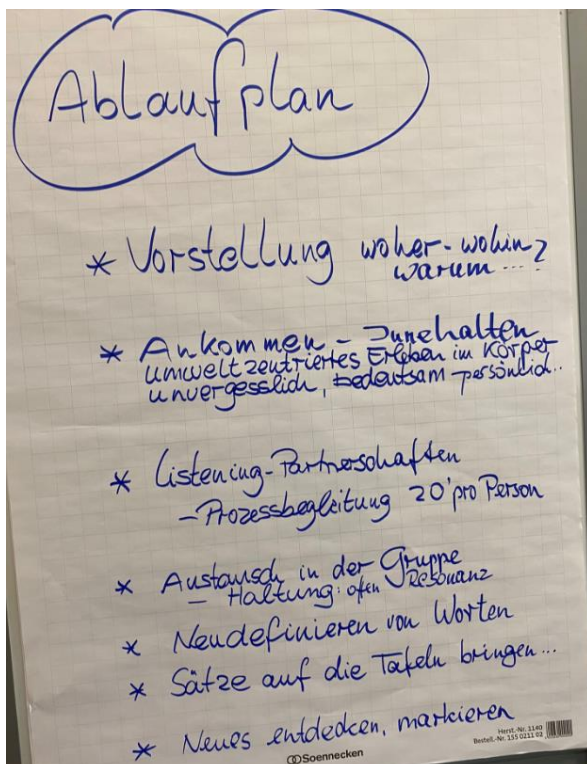 Ablaufplan
* Vorstellung woher - wohin?
warum ...?
* Ankommen - Innehalten
umweltzentriertes Erleben im Körper
unvergesslich, bedeutsam - persönlich..
* Listening-Partnerschaften
- Prozessbegleitung 20' pro Person
* Austausch in der Gruppe
- Haltung: offen Resonanz
* Neudefinieren von Worten
* Sätze auf die Tafeln bringen...
* Neues entdecken, markieren
Soennecken
Herst.-Nr. 1140
Bestell.-Nr. 155 0211 02